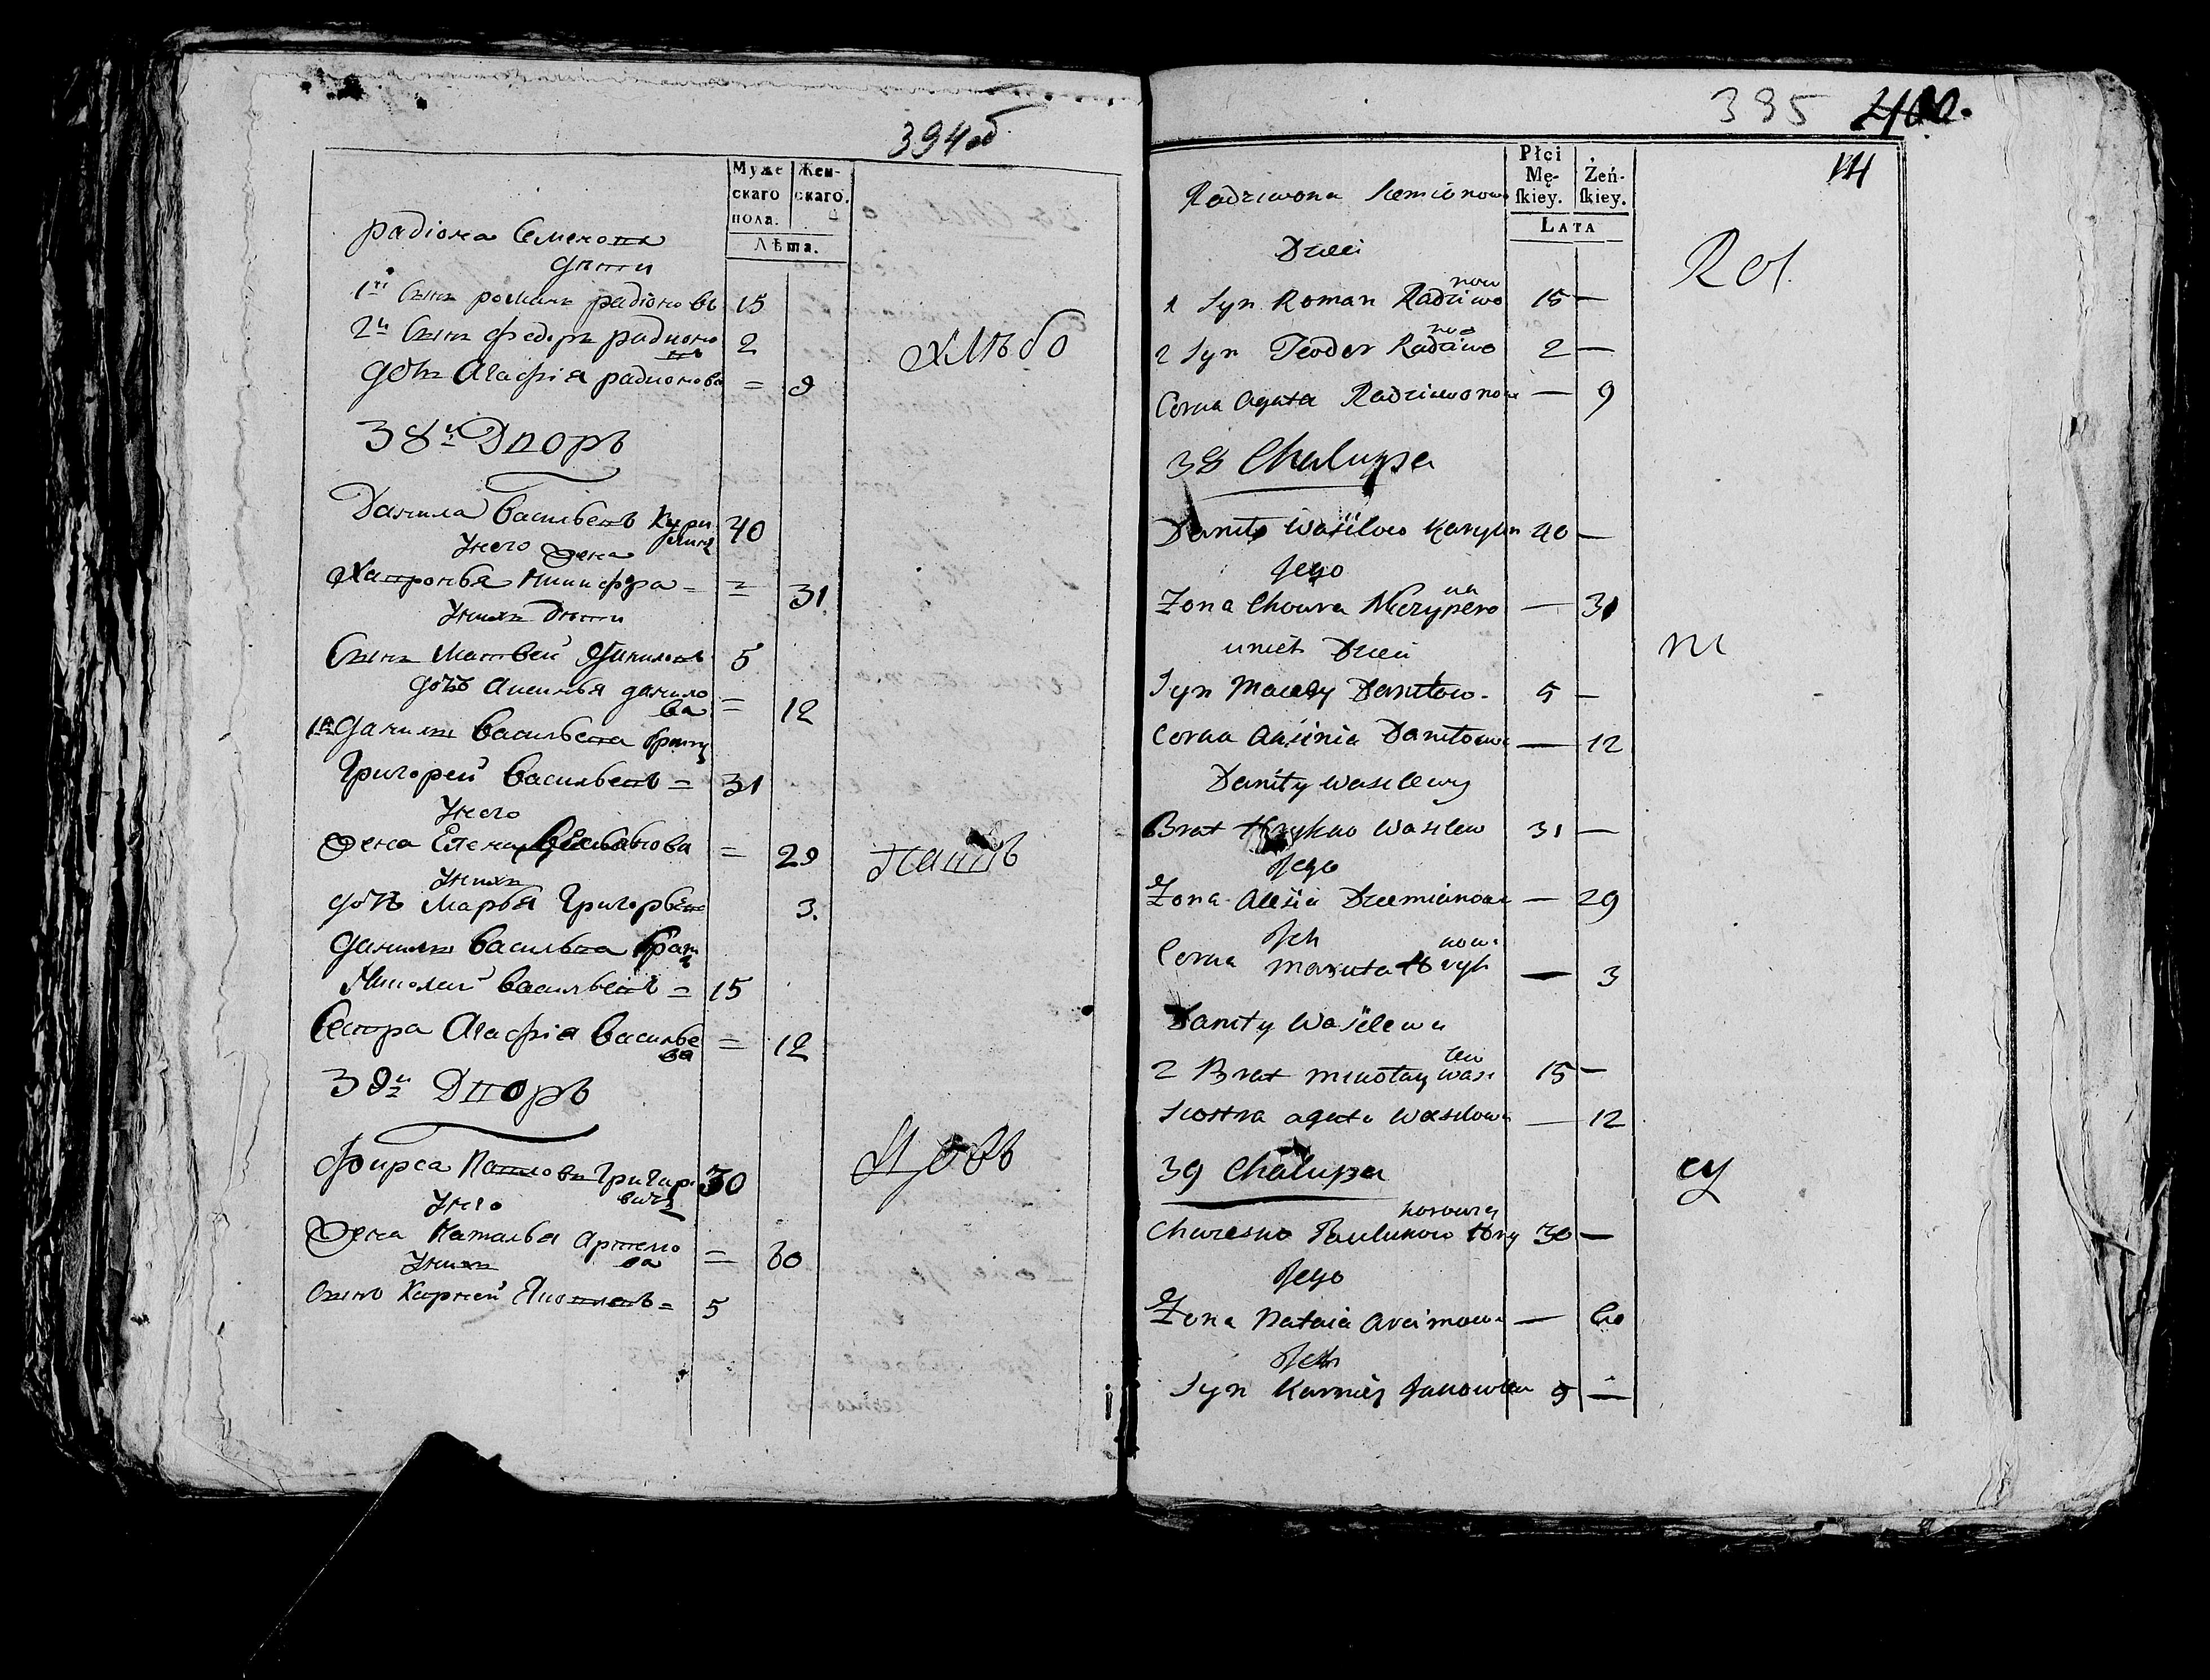 394 об
Муже
скаго
пола.
Жен-
скаго.
Лѣта.
радіона Семенова
дѣти
1й Сынъ романъ радіоновъ 15
2й Сынъ федоръ радионо
въ 2
дочь Агафія радионова = 9
хлѣбо
38й Дворъ
Данила Васильевъ 40
Унего жена
Хавронья = 31
Унихъ дѣти
Сынъ Матвей Даниловъ 5
дочь Аксинья данило
ва = 12
1й Данилы Васильева братъ
Григорей Васильевъ = 31
Унего
жена Елена = 29
пашъ
Унихъ
дочь Марья Григорьева 3.
Данилы Васильева братъ
Миколай Васильевъ = 15
Сестра Агафія Василье
ва = 12
39й Дворъ
фирса Павловъ Григор
вичъ 30
Цовъ
Унего
Жена Наталья Артемо
ва = 60
Унихъ
Сынъ Карней Яковлевъ = 5
395 400.
Płci
Mę-
ſkiey.
Żeń-
ſkiey.
LATA
Radziwona Semionowa
Dzieci
Rol.
1 Syn Roman Radziwo
now 15 —
2 Syn Teodor Radziwo
now 2 —
Corka Agata Radziwonowa — 9
38 Chalupa
Daniło Wasilow 40 —
Jego
Zona Chowra Niczypero
wa — 31
unich Dzieci
ni
Syn Maciey Daniłow. 5 —
Corka Axinia Daniłowa — 12
Daniły Wasilewy
Brat Hryhor Wasilew 31 —
Jego
Zona Alesia Dziemianowa — 29
Jch
Corka Maruta Hryh
now. — 3
Daniły Wasilewa
2 Brat Mikołay Wasi
lew 15 —
Siostra agata Wasilowa — 12
39 Chalupa
cy
Pawlukow Hry
horowicz 30 —
Jego
Zona Natalia Arcimowa — 60
Jch
Syn Karniey Jakowlew 5 —